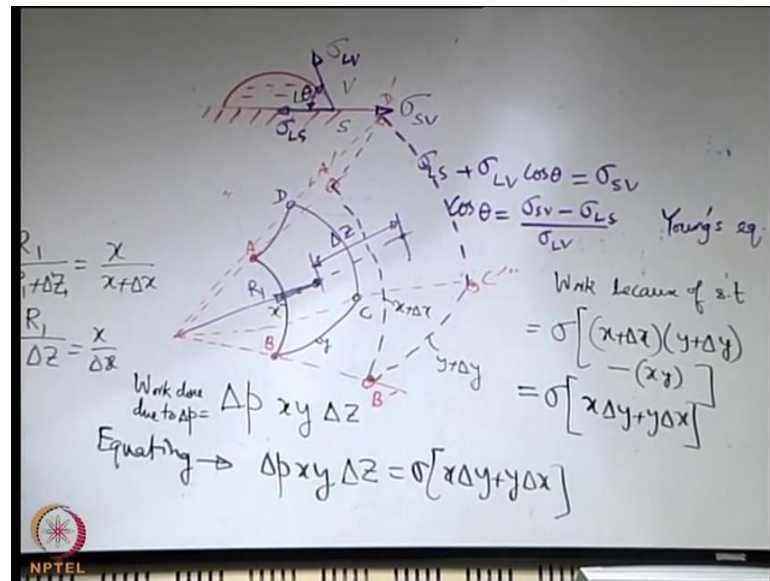 σLV
θ
V
σLS
S
σSV
σLS + σLV cosθ = σSV
cosθ = σSV - σLS / σLV Young's eq.
A'
D
ΔZ
A
R1
x
C
C'
B
y
x+Δx
y+Δy
B'
R1 / R1+ΔZ = x / x+Δx
R1 / ΔZ = x / Δx
Work because of s.t
= σ[(x+Δx)(y+Δy)
-(xy)]
= σ[xΔy+yΔx]
Work done
due to Δp = Δp xy ΔZ
Equating → Δp xy ΔZ = σ[xΔy+yΔx]
NPTEL